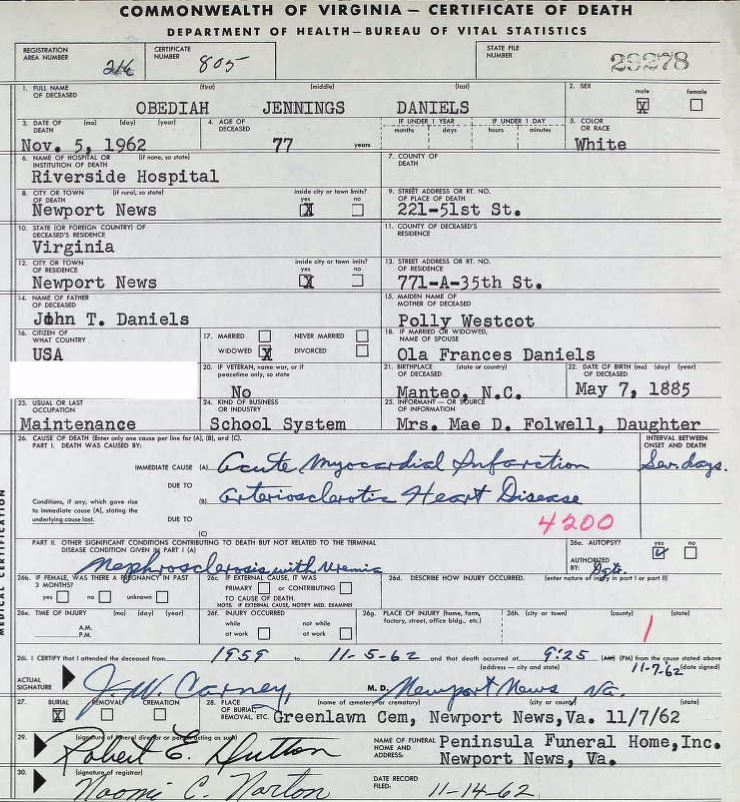 COMMONWEALTH OF VIRGINIA — CERTIFICATE OF DEATH
DEPARTMENT OF HEALTH—BUREAU OF VITAL STATISTICS
REGISTRATION AREA NUMBER 216 CERTIFICATE NUMBER 805 STATE FILE NUMBER 29278
1. FULL NAME OF DECEASED (first) (middle) (last) 2. SEX male female
OBEDIAH JENNINGS DANIELS X
3. DATE OF DEATH (mo) (day) (year) 4. AGE OF DECEASED IF UNDER 1 YEAR months days IF UNDER 1 DAY hours minutes 5. COLOR OR RACE
Nov. 5, 1962 77 years White
6. NAME OF HOSPITAL OR INSTITUTION OF DEATH (if none, so state) 7. COUNTY OF DEATH
Riverside Hospital
8. CITY OR TOWN OF DEATH (if rural, so state) inside city or town limits? yes no 9. STREET ADDRESS OR RT. NO. OF PLACE OF DEATH
Newport News X 221-51st St.
10. STATE (OR FOREIGN COUNTRY) OF DECEASED'S RESIDENCE 11. COUNTY OF DECEASED'S RESIDENCE
Virginia
12. CITY OR TOWN OF RESIDENCE inside city or town limits? yes no 13. STREET ADDRESS OR RT. NO. OF RESIDENCE
Newport News X 771-A-35th St.
14. NAME OF FATHER OF DECEASED 15. MAIDEN NAME OF MOTHER OF DECEASED
John T. Daniels Polly Westcot
16. CITIZEN OF WHAT COUNTRY 17. MARRIED NEVER MARRIED WIDOWED X DIVORCED 18. IF MARRIED OR WIDOWED, NAME OF SPOUSE
USA Ola Frances Daniels
20. IF VETERAN, name war, or if peacetime only, so state 21. BIRTHPLACE OF DECEASED (state or country) 22. DATE OF BIRTH (mo) (day) (year) OF DECEASED
No Manteo, N.C. May 7, 1885
23. USUAL OR LAST OCCUPATION 24. KIND OF BUSINESS OR INDUSTRY 25. INFORMANT — OR SOURCE OF INFORMATION
Maintenance School System Mrs. Mae D. Folwell, Daughter
26. CAUSE OF DEATH (Enter only one cause per line for (A), (B), and (C). INTERVAL BETWEEN ONSET AND DEATH
PART I. DEATH WAS CAUSED BY:
IMMEDIATE CAUSE (A) Acute Myocardial Infarction Sev. days.
DUE TO
Conditions, if any, which gave rise to immediate cause (A), stating the underlying cause last. (B) Arteriosclerotic Heart Disease
DUE TO 4200
(C)
PART II. OTHER SIGNIFICANT CONDITIONS CONTRIBUTING TO DEATH BUT NOT RELATED TO THE TERMINAL DISEASE CONDITION GIVEN IN PART I (A) 26a. AUTOPSY? yes no
Nephrosclerosis with Uremia AUTHORIZED BY: Dgtr.
26b. IF FEMALE, WAS THERE A PREGNANCY IN PAST 3 MONTHS? yes no unknown 26c. IF EXTERNAL CAUSE, IT WAS PRIMARY or CONTRIBUTING TO CAUSE OF DEATH. 26d. DESCRIBE HOW INJURY OCCURRED. (enter nature of injury in part I or part II)
NOTE. IF EXTERNAL CAUSE, NOTIFY MED. EXAMINER
26e. TIME OF INJURY (mo) (day) (year) A.M. P.M. 26f. INJURY OCCURRED while at work not while at work 26g. PLACE OF INJURY (home, farm, factory, street, office bldg., etc.) 26h. (city or town) (county) (state)
26i. I CERTIFY that I attended the deceased from 1959 to 11-5-62 and that death occurred at 9:25 (PM) from the cause stated above
(address — city and state) 11-7-62 (date signed)
ACTUAL SIGNATURE J. W. Carney, M. D. Newport News Va.
27. BURIAL REMOVAL CREMATION 28. PLACE OF BURIAL, REMOVAL, ETC. (name of cemetery or crematory) (city or county) (state)
X Greenlawn Cem, Newport News,Va. 11/7/62
29. (signature of funeral director or person acting as such) NAME OF FUNERAL HOME AND ADDRESS: Peninsula Funeral Home,Inc.
Robert E. Hutton Newport News, Va.
30. (signature of registrar) DATE RECORD FILED:
Naomi C. Norton 11-14-62
MEDICAL CERTIFICATION